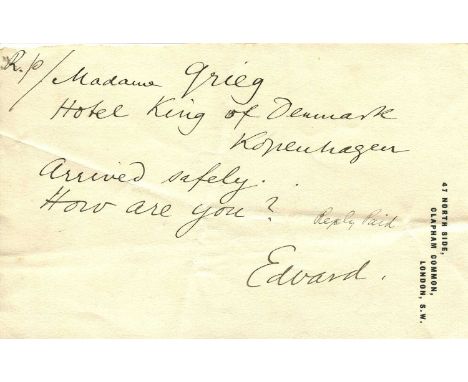 R.p/
Madame Grieg
Hotel King of Denmark
Kopenhagen
Arrived safely.
How are you?
Reply Paid
Edvard.
47 NORTH SIDE,
CLAPHAM COMMON,
LONDON, S.W.